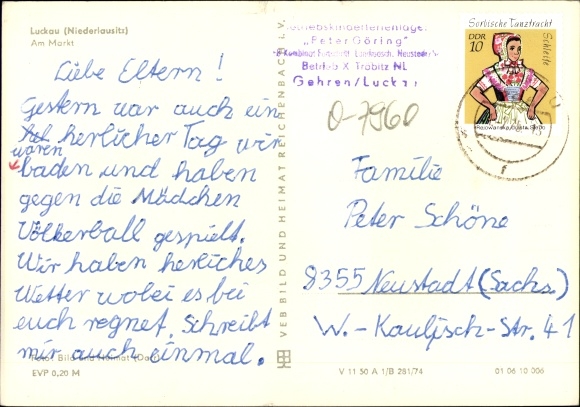 Luckau (Niederlausitz)
Am Markt
Liebe Eltern!
Gestern war auch ein
herlicher Tag wir
waren
baden und haben
gegen die Mädchen
Völkerball gespielt.
Wir haben herliches
Wetter wobei es bei
euch regnet. Schreibt
mir auch einmal.
EVP 0,20 M
VEB BILD UND HEIMAT REICHENBACH i. V.
Betriebskinderferienlager
„Peter Göring"
Betrieb X Trabitz NL
Gehren/Luckau
O-7960
Sorbische Tanztracht
DDR
10
Schleife
Familie
Peter Schöne
8355 Neustadt (Sachs.)
W.-Kauljsch-Str. 41
V 11 50 A 1/B 281/74
01 06 10 006